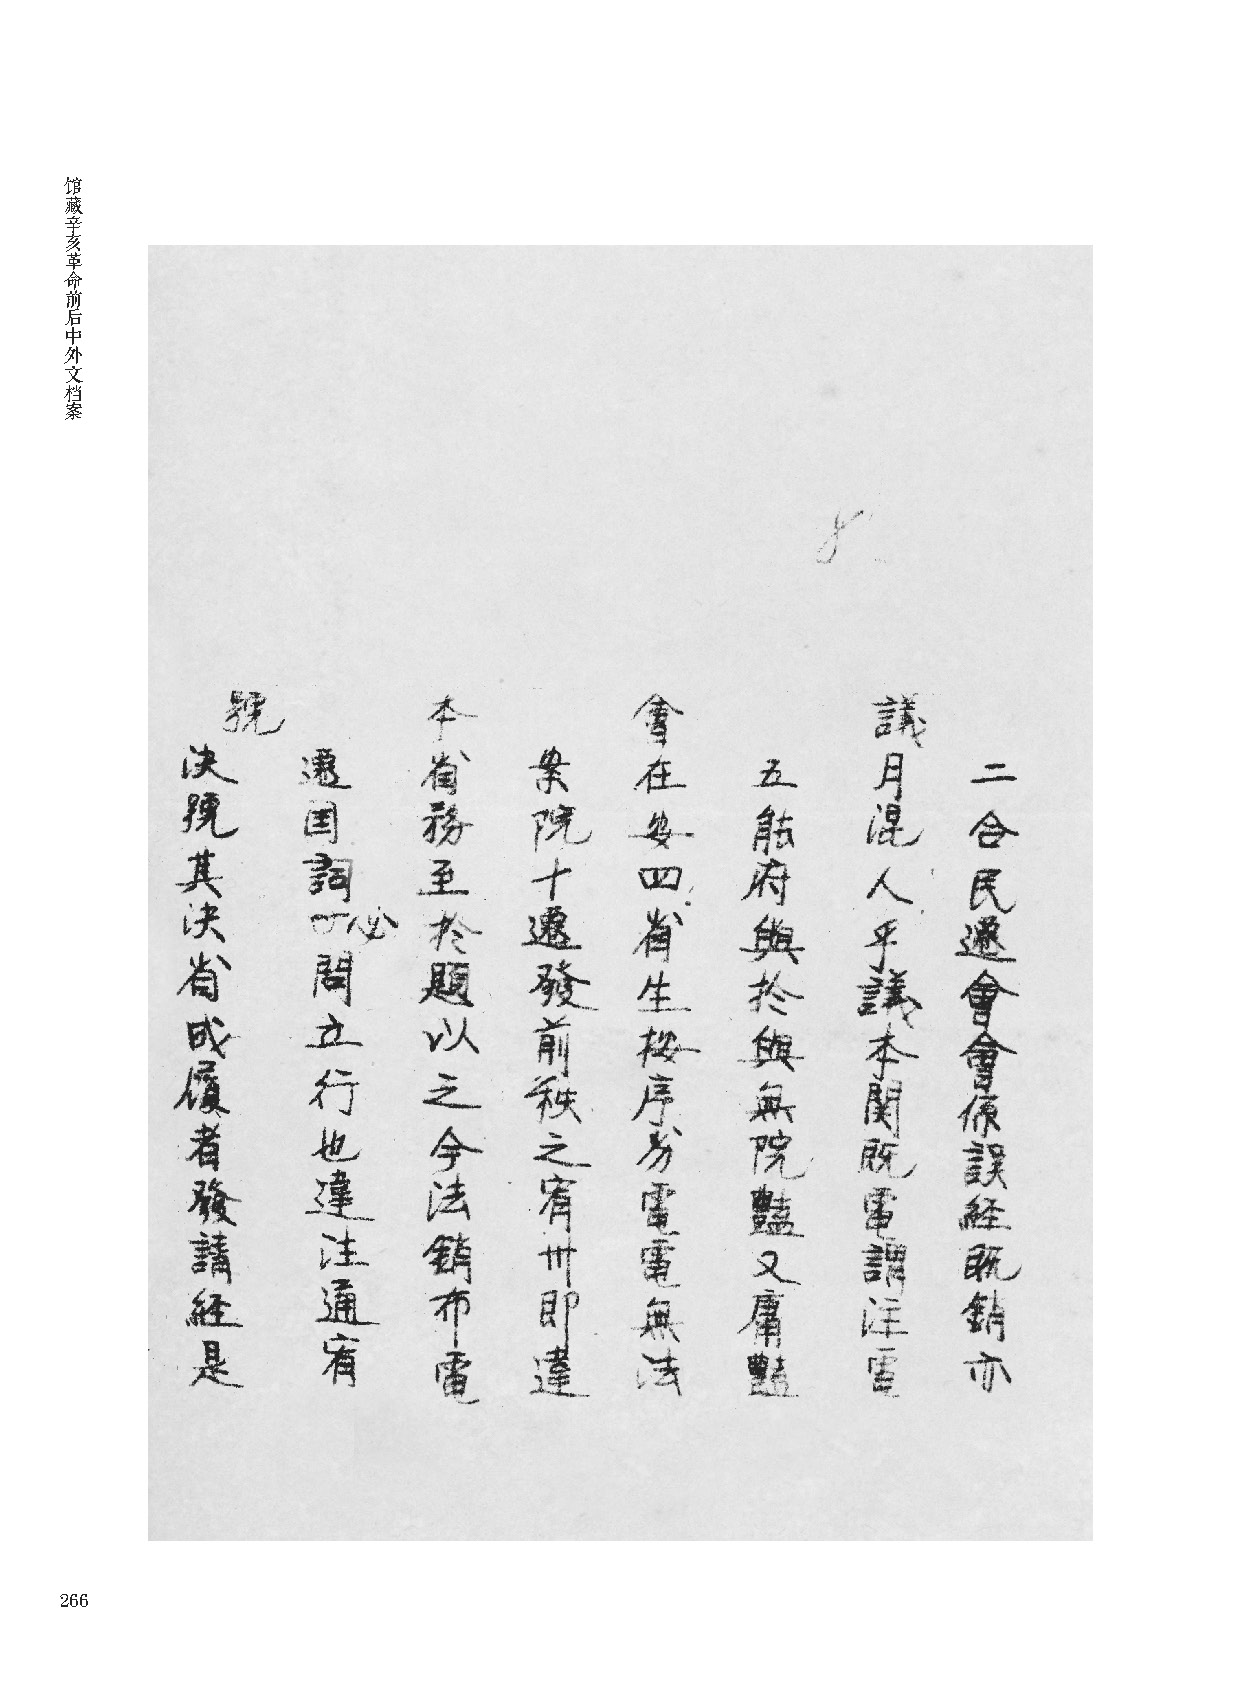 馆藏辛亥革命前后中外文档案
二合民選會會原誤経既銷亦
議月混人乎議本関既電謂注電
五能府與於與無院豔又庸豔
會在安四省生按序分電電無法
案院十選發前秩之宥卅即違
本省務至於題以之今法銷布電
選国詞必問立行也違法通宥
號
決號其決省成履者發請経是
266